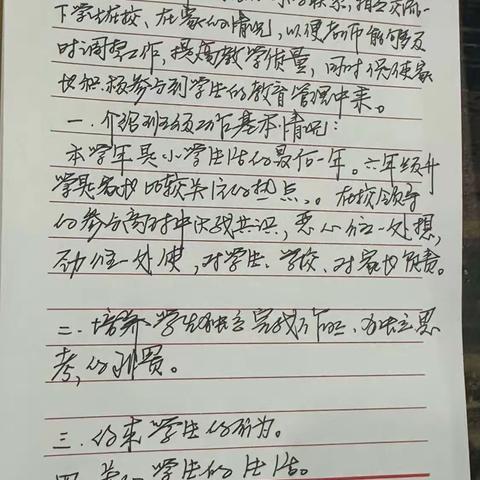 下学生在校、在家的情况，以便老师能够及
时调整工作，提高教学质量，同时促使家
长积极参与到学生的教育管理中来。
一、介绍班级工作基本情况：
本学年是小学生活的最后一年。六年级升
学是家长比较关注的热点、。在校领导
的参与商讨中达成共识，心往一处想，
劲往一处使，对学生、学校、对家长负责。
二、培养学生独立完成作业、独立思
考，的习惯。
三、约束学生的行为。
四、关心学生的生活。